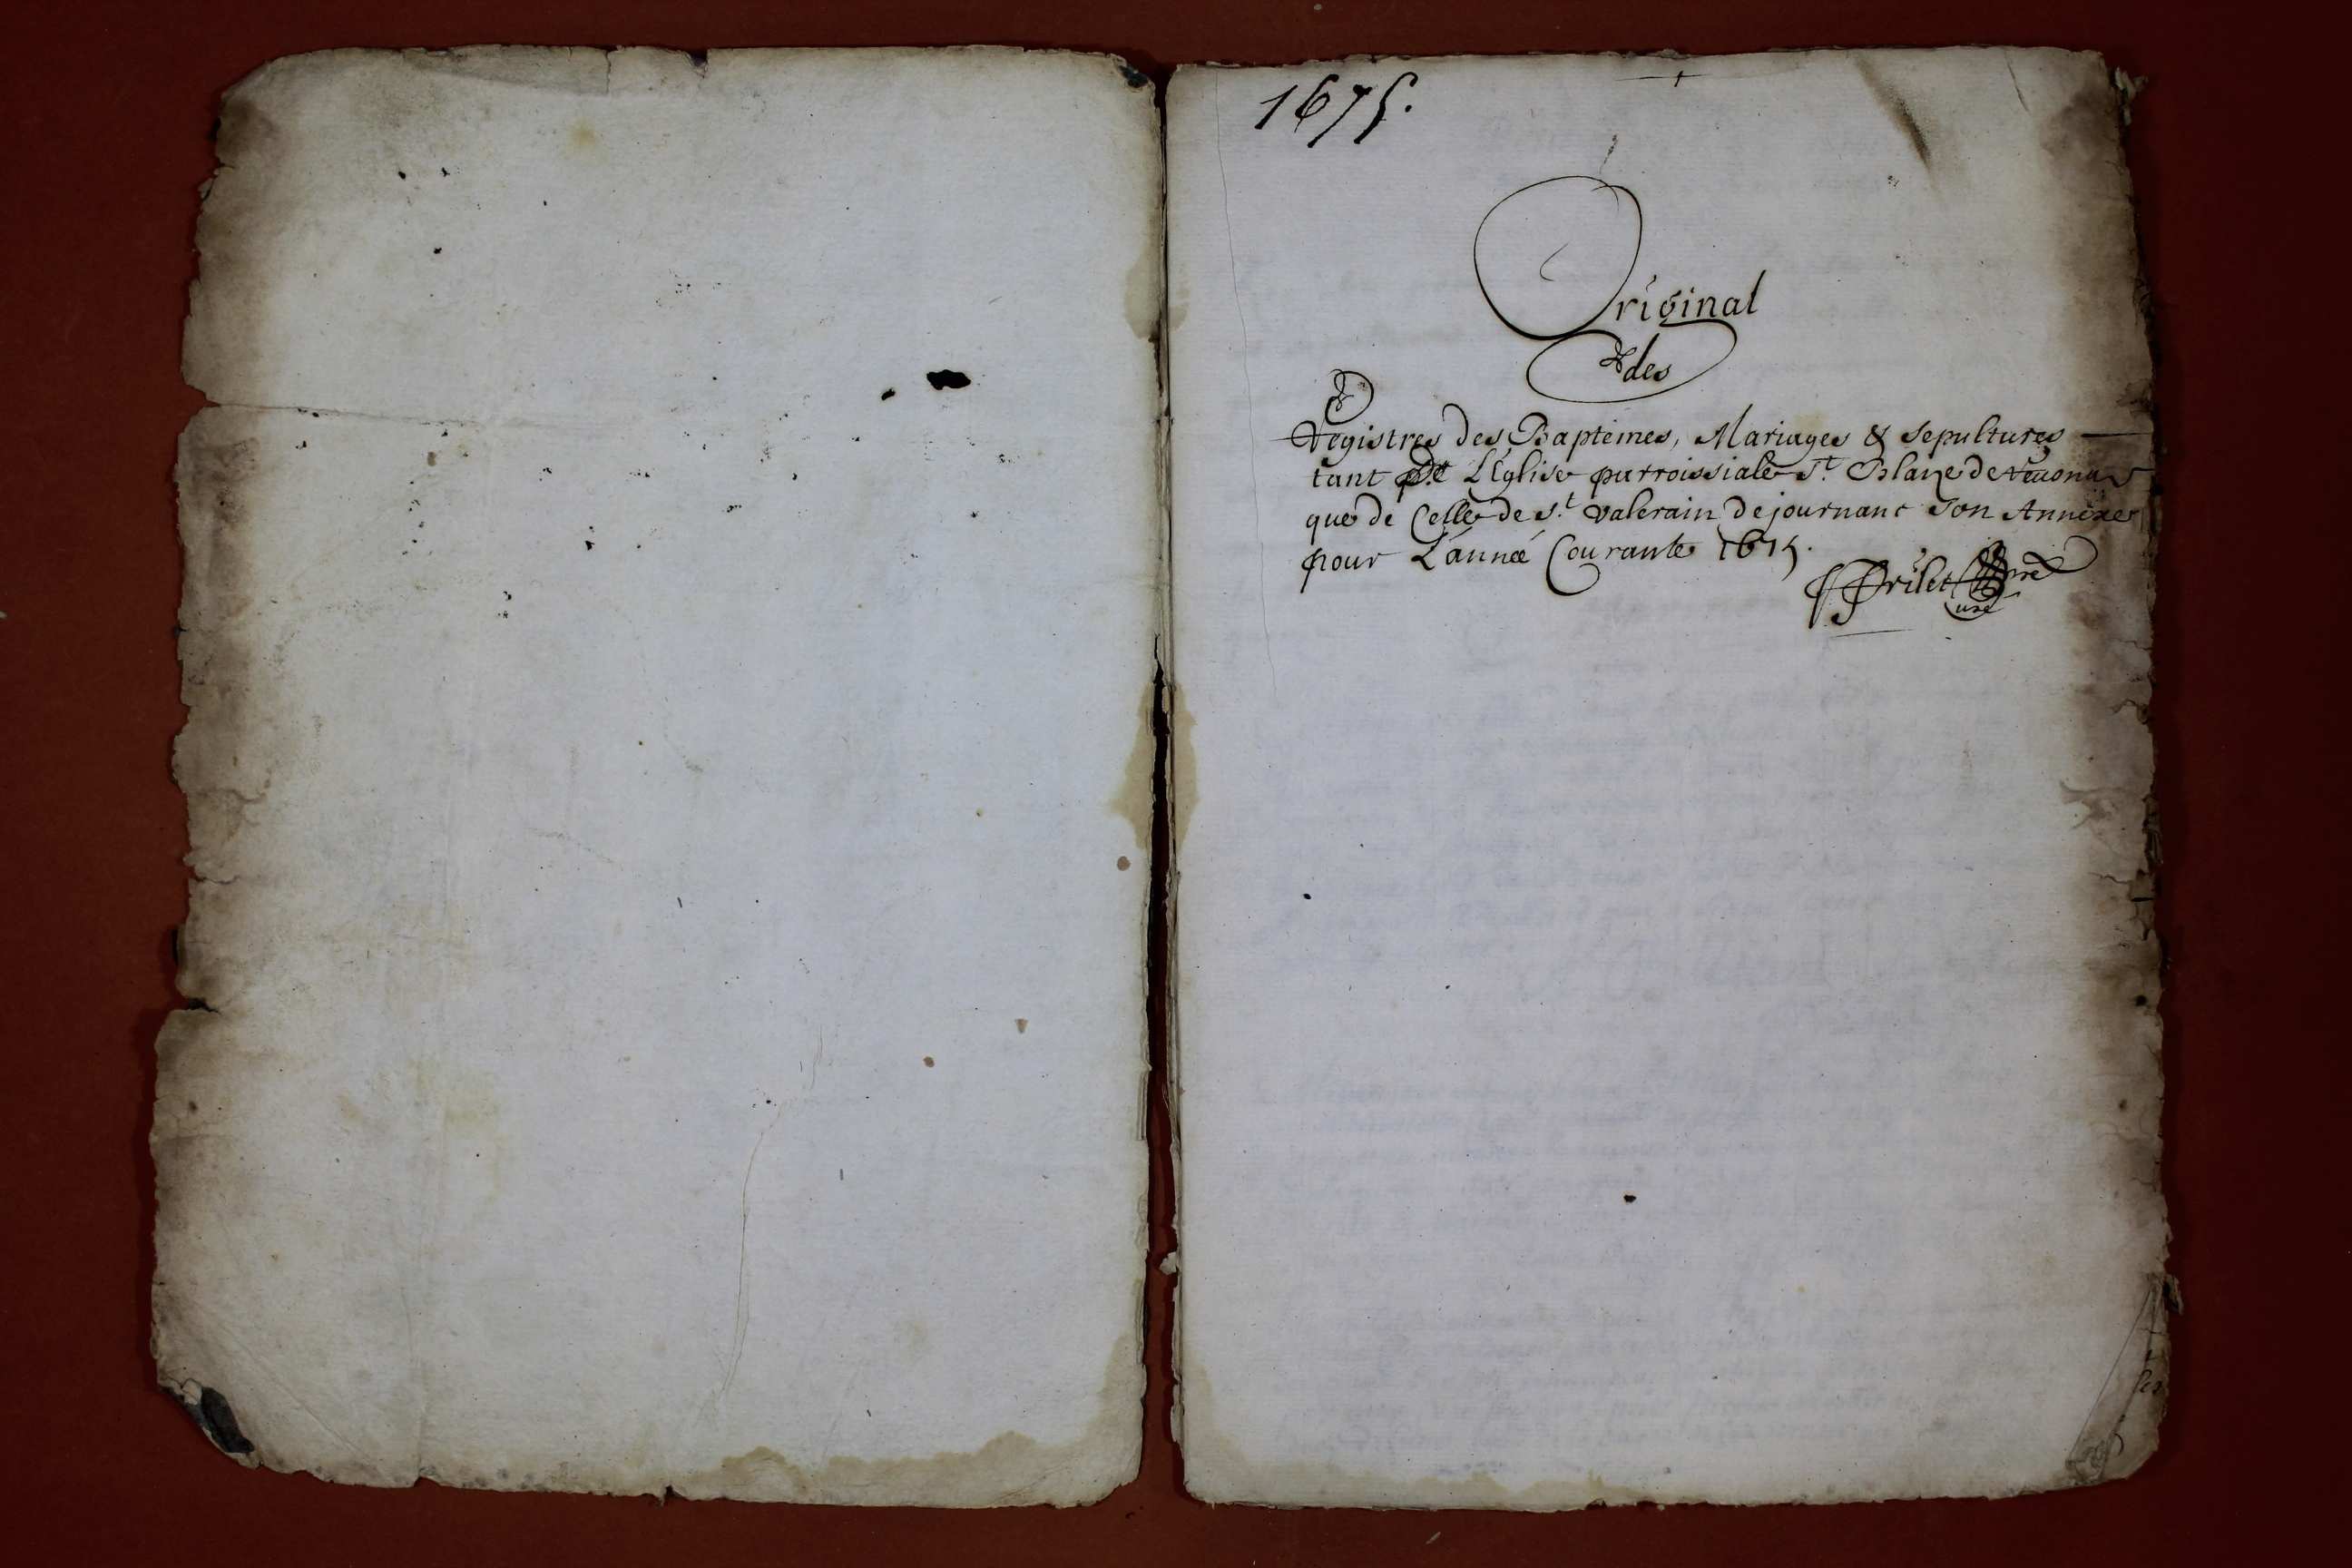 1675.
Original
des
Registres des Baptêmes, Mariages & sepultures
tant de L'Eglise parroissiale St. Blaize de Veuonas
que de Celle de St. valerain de journanc son Annéxe
pour L'année Courante 1675.
pre
Curé